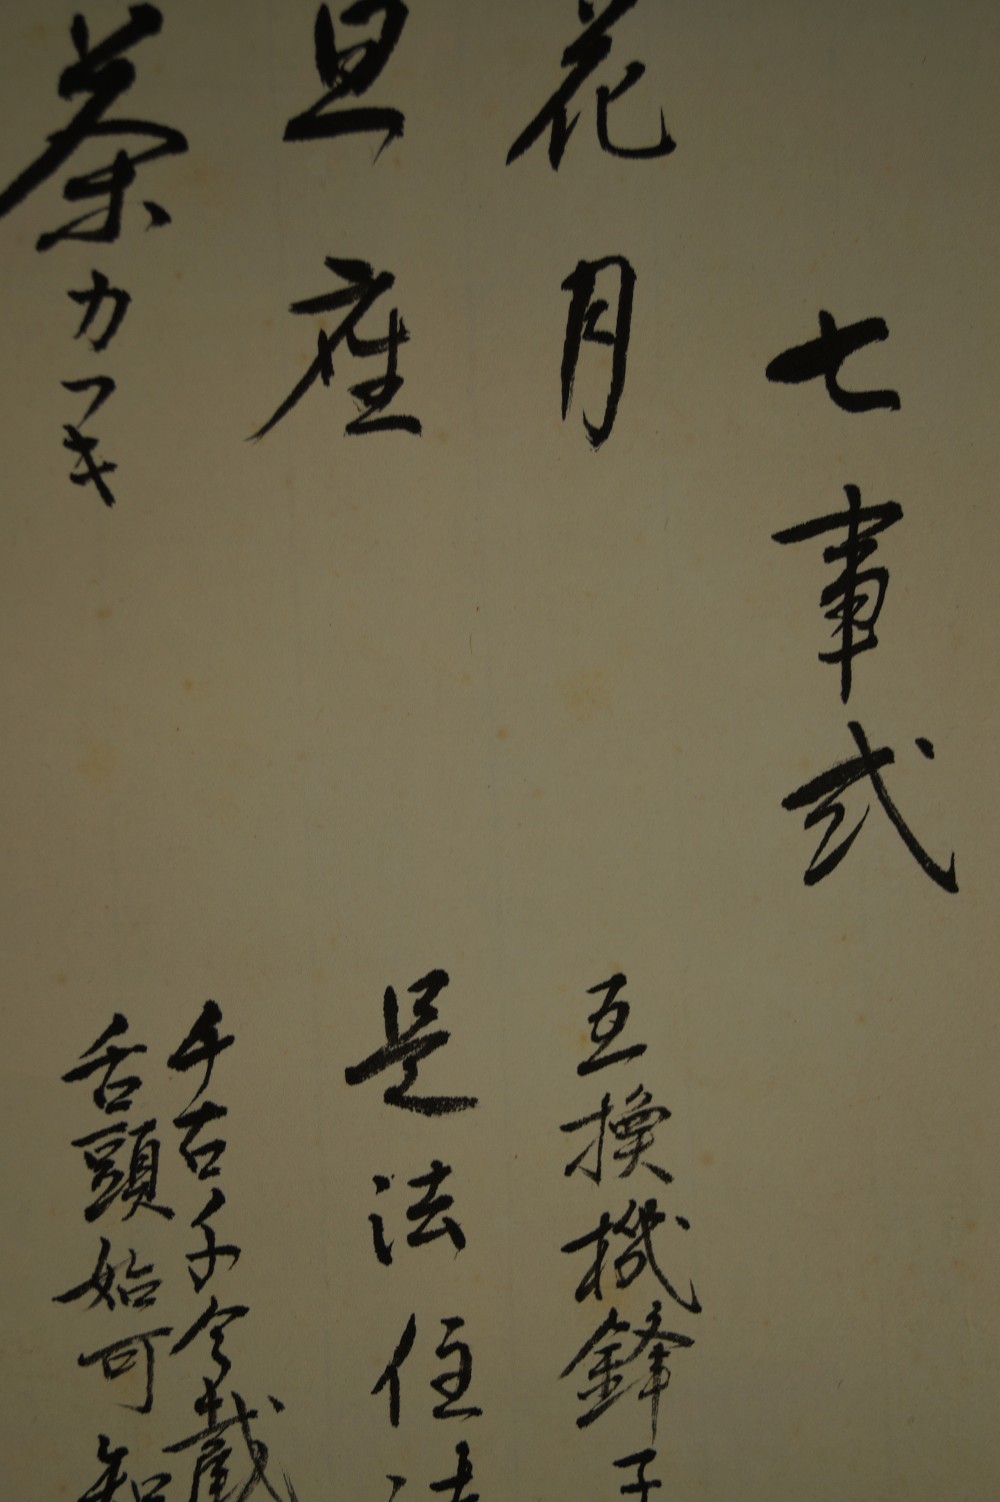 七事式
花月
互換機鋒子
且座
是法住法
茶カフキ
千古千今截
舌頭始可知